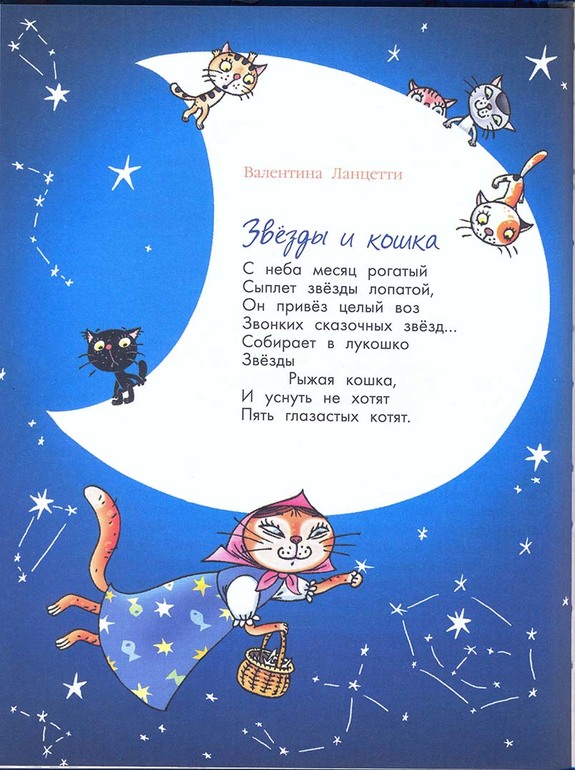 Валентина Ланцетти
Звёзды и кошка
С неба месяц рогатый
Сыплет звёзды лопатой,
Он привёз целый воз
Звонких сказочных звёзд...
Собирает в лукошко
Звёзды
Рыжая кошка,
И уснуть не хотят
Пять глазастых котят.